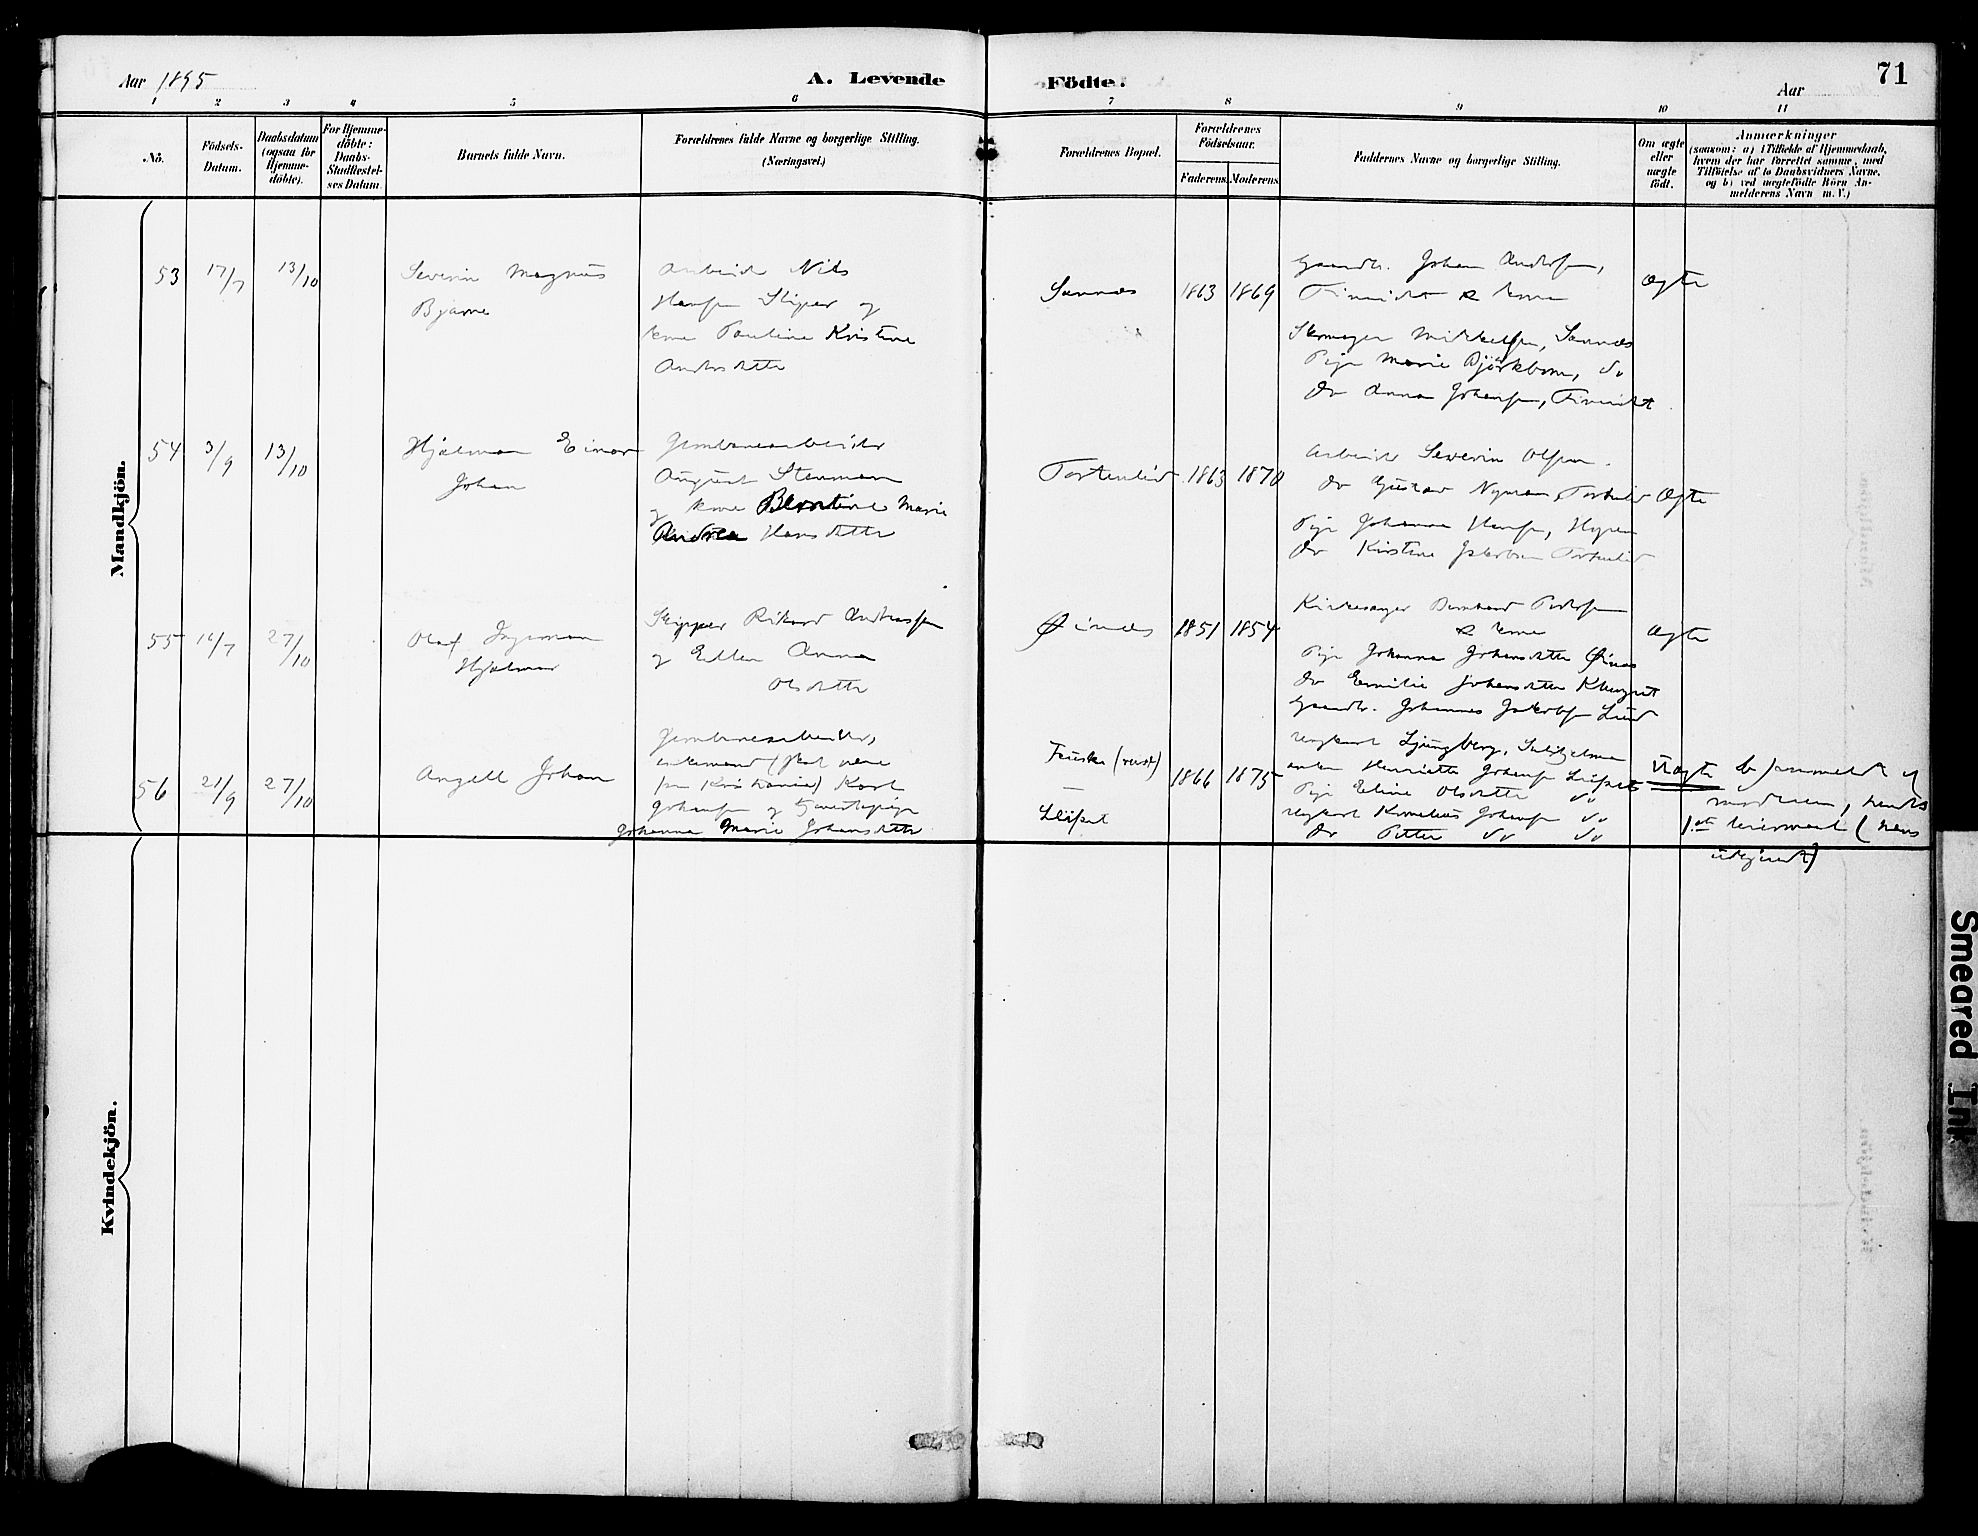 Aar 1895
A. Levende
Födte.
71
Aar
1 2 3 4 5 6 7 8 9 10 11
No.
Födsels-
Datum.
Daabsdatum
(ogsaa for
Hjemme-
döbte).
For Hjemme-
döbte:
Daabs-
Stadfæstel-
ses Datum
Barnets fulde Navn.
Forældrenes fulde Navne og borgerlige Stilling.
(Næringsvei.)
Forældrenes Bopæl.
Forældrenes
Födselsaar.
Faderens.
Moderens
Faddernes Navne og borgerlige Stilling.
Om ægte
eller
uægte
födt.
Anmærkninger
(saasom: a) i Tilfælde af Hjemmedaab,
hvem der har forrettet samme, med
Tilföielse af to Daabsvidners Navne,
og b) ved uægtefödte Börn An-
melderens Navn m. V.)
Mandkjön.
53
17/7
13/10
Severin Magnus
Bjarne
Arbeider Nils
Hansen Skipar og
kone Pauline Kristine
Andersdatter
Sannes
1863
1869
Gaardbr. Johan Andersen,
& kone
Mikkelsen, Sannes
Pige Marie Björkbom, do
do Anna Johansen,
Ægte
54
3/9
13/10
Hjalmar Einar
Johan
Jernbanearbeider
August Stenman
og kone Berntine Marie
Andrea Hansdatter
Tortenlid
1863
1870
Arbeider Severin Olsen
do Gustav Nyman, Tortenlid
Pige Johanna Hansen,
do Kirstine Jakobsen Tortenlid
Ægte
55
16/7
27/10
Olaf Ingeman
Hjalmar
Skipper Rikard Andreassen
og Ellen Anna
Olsdatter
Øines
1851
1854
Kirkesanger Bernhard Pedersen
& kone
Pige Johanna Johansdatter Øines
do Emilie Johansdatter Klungset
Gaardbr. Johannes Jakobsen Lund
Ægte
56
21/9
27/10
Angell Johan
Jernbanearbeider,
enkemand (skal være
fra Kristiania) Karl
Johansen og tjenestepige
Johanna Marie Johansdatter
Fauske (reist)
—
Leifset
1866
1875
Ungkarl Ljungberg, Sulitjelma
enke Henriette Johansen Leifset
Pige Eline Olsdatter do
Ungkarl Kornelius Johansen do
do Petter do do
Uægte
b) anmeldt af
moderen, hendes
1ste leiermaal (hans
ubekjendt)
Kvindekjön.
Smeared Ink